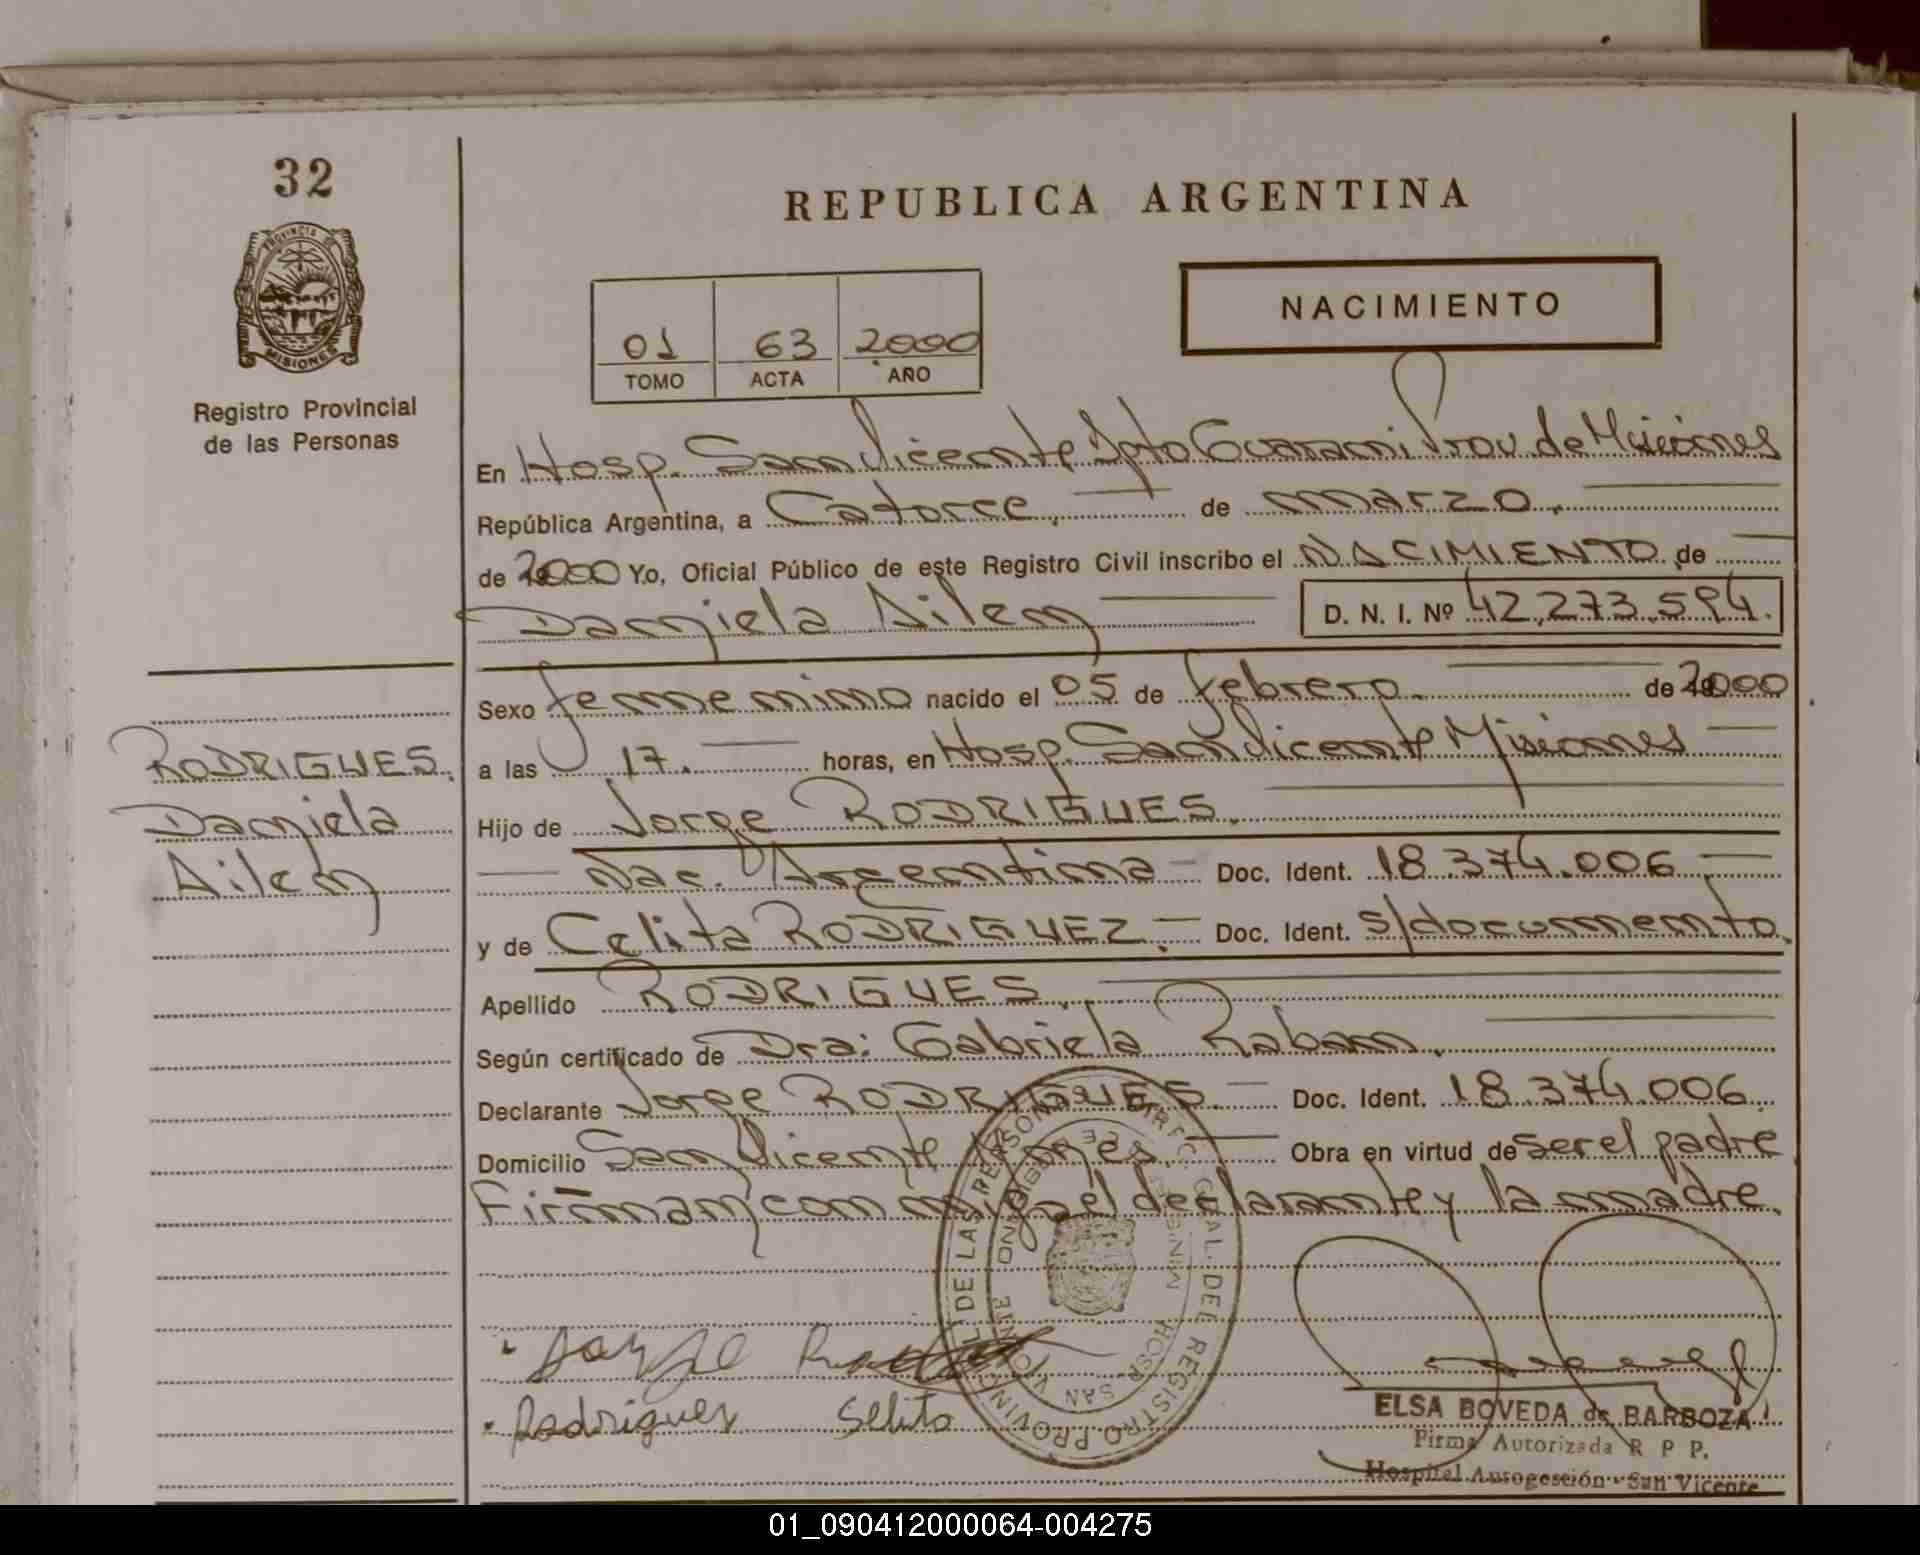 32
PROVINCIA DE
MISIONES
Registro Provincial
de las Personas
REPUBLICA ARGENTINA
NACIMIENTO
01 63 2000
TOMO ACTA AÑO
En Hosp. San Vicente Dpto Guarani Prov. de Misiones
República Argentina, a Catorce. de marzo.
de 2000 Yo, Oficial Público de este Registro Civil inscribo el NACIMIENTO de
Daniela Ailen D. N. I. Nº 42.273.594.
Sexo femenino nacido el 05 de febrero. de 2000
RODRIGUES.
a las 17. horas, en Hosp. San Vicente Misiones
Daniela
Hijo de Jorge RODRIGUES.
Ailen
Nac. Argentina - Doc. Ident. 18.374.006
y de Celita RODRIGUEZ. Doc. Ident. s/documento.
Apellido RODRIGUES.
Según certificado de Dra: Gabriela Raban.
Declarante Jorge RODRIGUES. Doc. Ident. 18.374.006
Domicilio San Vicente Obra en virtud de ser el padre
Firman con migo el declarante y la madre.
REGISTRO PROVINCIAL DE LAS PERSONAS
HOSP. SAN VICENTE
Jorge
Rodriguez Selita
ELSA BOVEDA de BARBOZA
Firma Autorizada R P P.
Hospital Autogestión - San Vicente
01_090412000064-004275